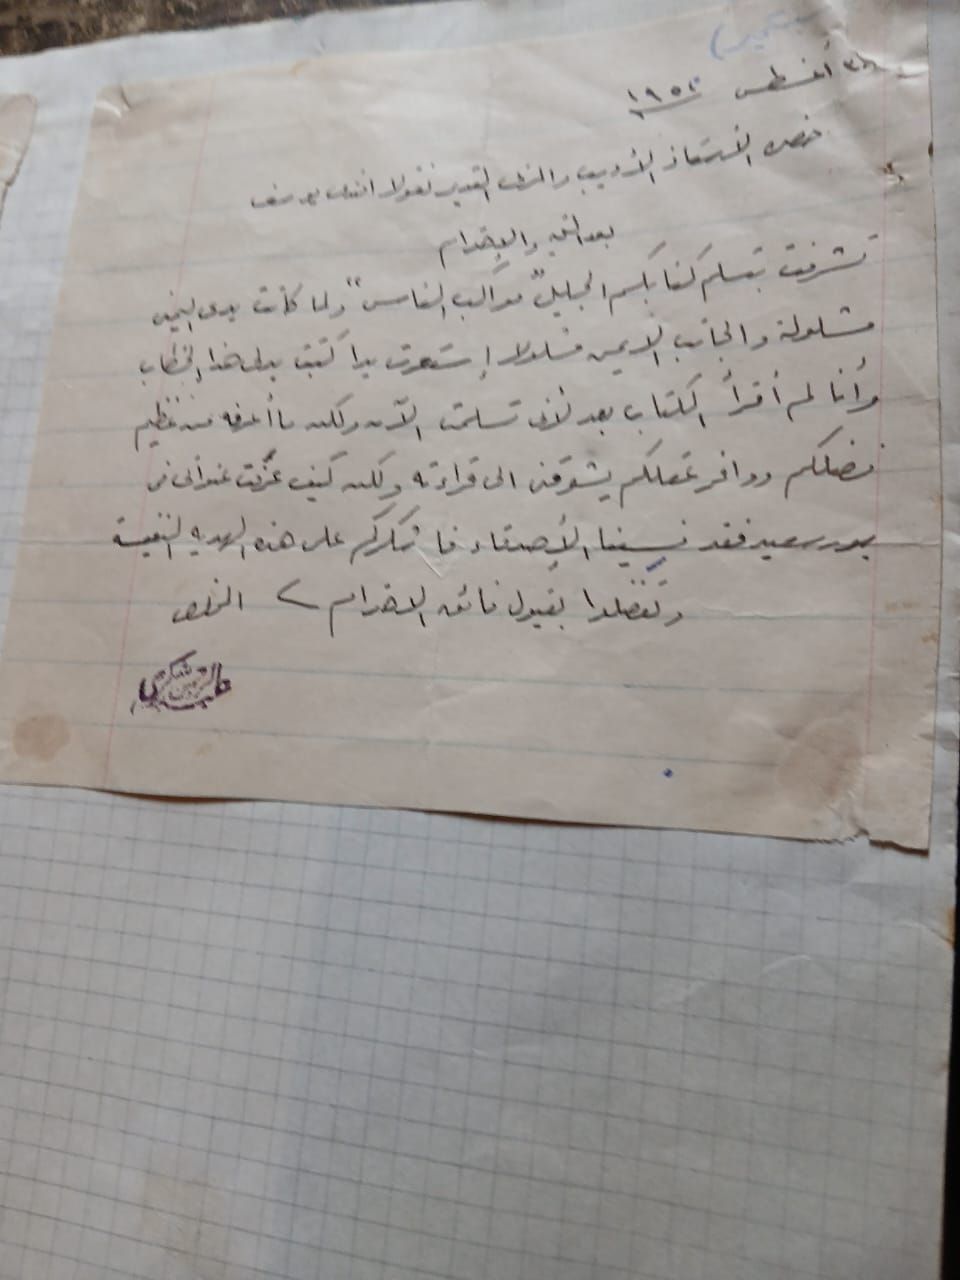 أغسطس ١٩٥٢
حضرة الأستاذ الأديب والمربى القدير نقولا افندى يوسف
بعد التحية والإحترام
تشرفت بتسلم كتابكم الجليل "مواكب الناس" ولما كانت يدى اليمنى
مشلولة والجانب الايمن مشلولا إستعرت يدا كتبت بدلى هذا الخطاب
وأنا لم أقرأ الكتاب بعد لأنى تسلمته الآن ولكن ما أعرفه من عظيم
فضلكم ووافر عقلكم يشوقنى الى قراءته ولكن كيف عرفت عنوانى فى
بور سعيد فقد نسينا الأصدقاء فأشكركم على هذه الهدية النفيسة
وتفضلوا بقبول فائق الاحترام المخلص
عبد الرحمن شكرى